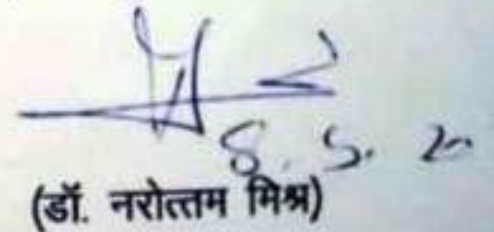 8. 5. 20
(डॉ. नरोत्तम मिश्र)